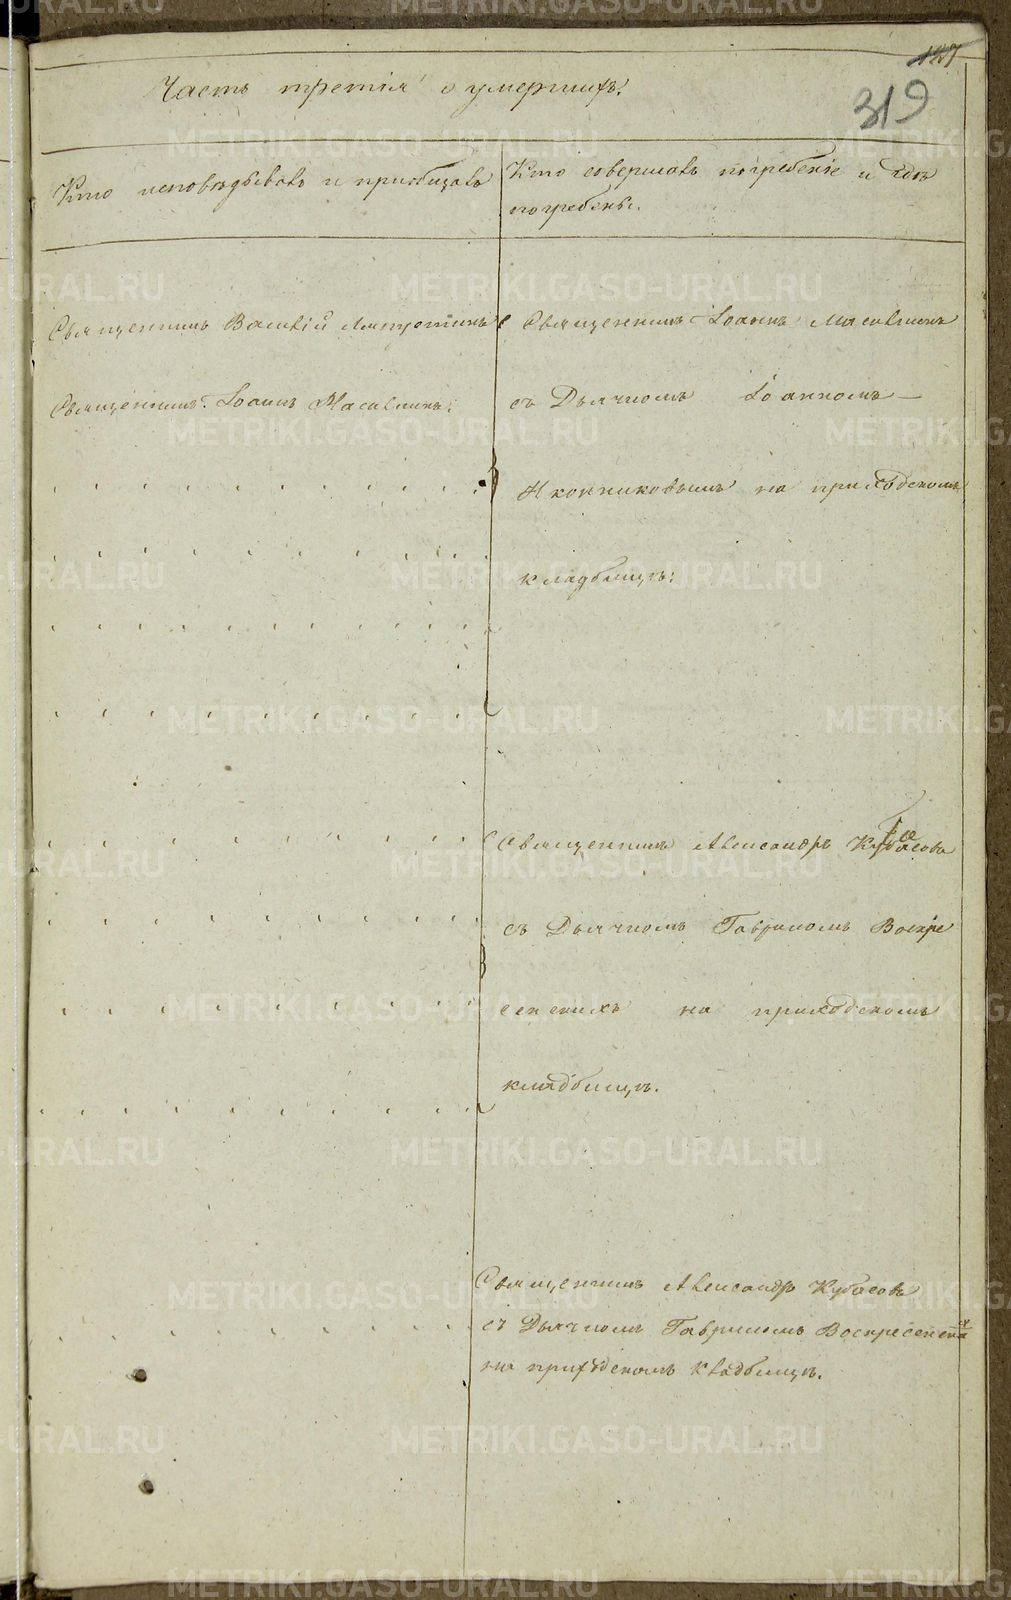 319
Часть третія о умершихъ.
Кто исповѣдывалъ и пріобщалъ
Кто совершалъ погребеніе и гдѣ
погребены.
Священникъ Василій
Священникъ Іоаннъ
Священникъ Іоаннъ
съ Дьячкомъ Іоанномъ
Иконниковымъ на приходскомъ
кладбищѣ:
Священникъ Александръ Кубасовъ
съ Дьячкомъ Гавриломъ Воскре
сенскихъ на приходскомъ
кладбищѣ.
Священникъ Александръ Кубасовъ
съ Дьячкомъ Гавриломъ
на приходскомъ кладбищѣ.
METRIKI.GASO-URAL.RU